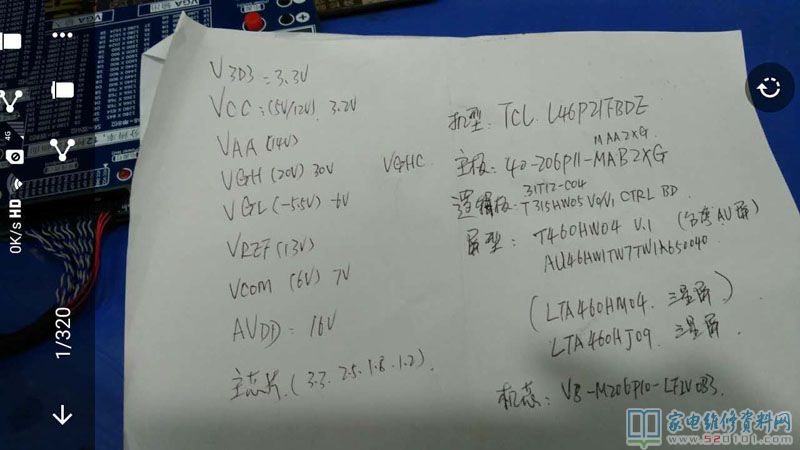 V3D3 = 3.3V
VCC: (5V/12V). 3.2V
VAA (14V)
VGH (20V) 30V
VGHC
VGL (-5.5V) -6V
VREF (13V)
VCOM (6V) 7V
AVDD: 16V
主芯片. (3.3. 2.5. 1.8. 1.2).
机型: TCL. L46P21FBDE
MAA2XG.
主板: 40-206P11-MAB2XG
31T12-C04
逻辑板: T315HW05 V0/V1 CTRL BD
屏型: T460HW04 V.1 (台湾AU屏)
AU46HW1TW7TW1A650040
(LTA460HM04. 三星屏)
LTA460HJ09. 三星屏.
机芯: V8-M206P10-LF1V083.
VGA 输入
VGA 输出
0K/s HD 4G
1/320
家电维修资料网
www.520101.com